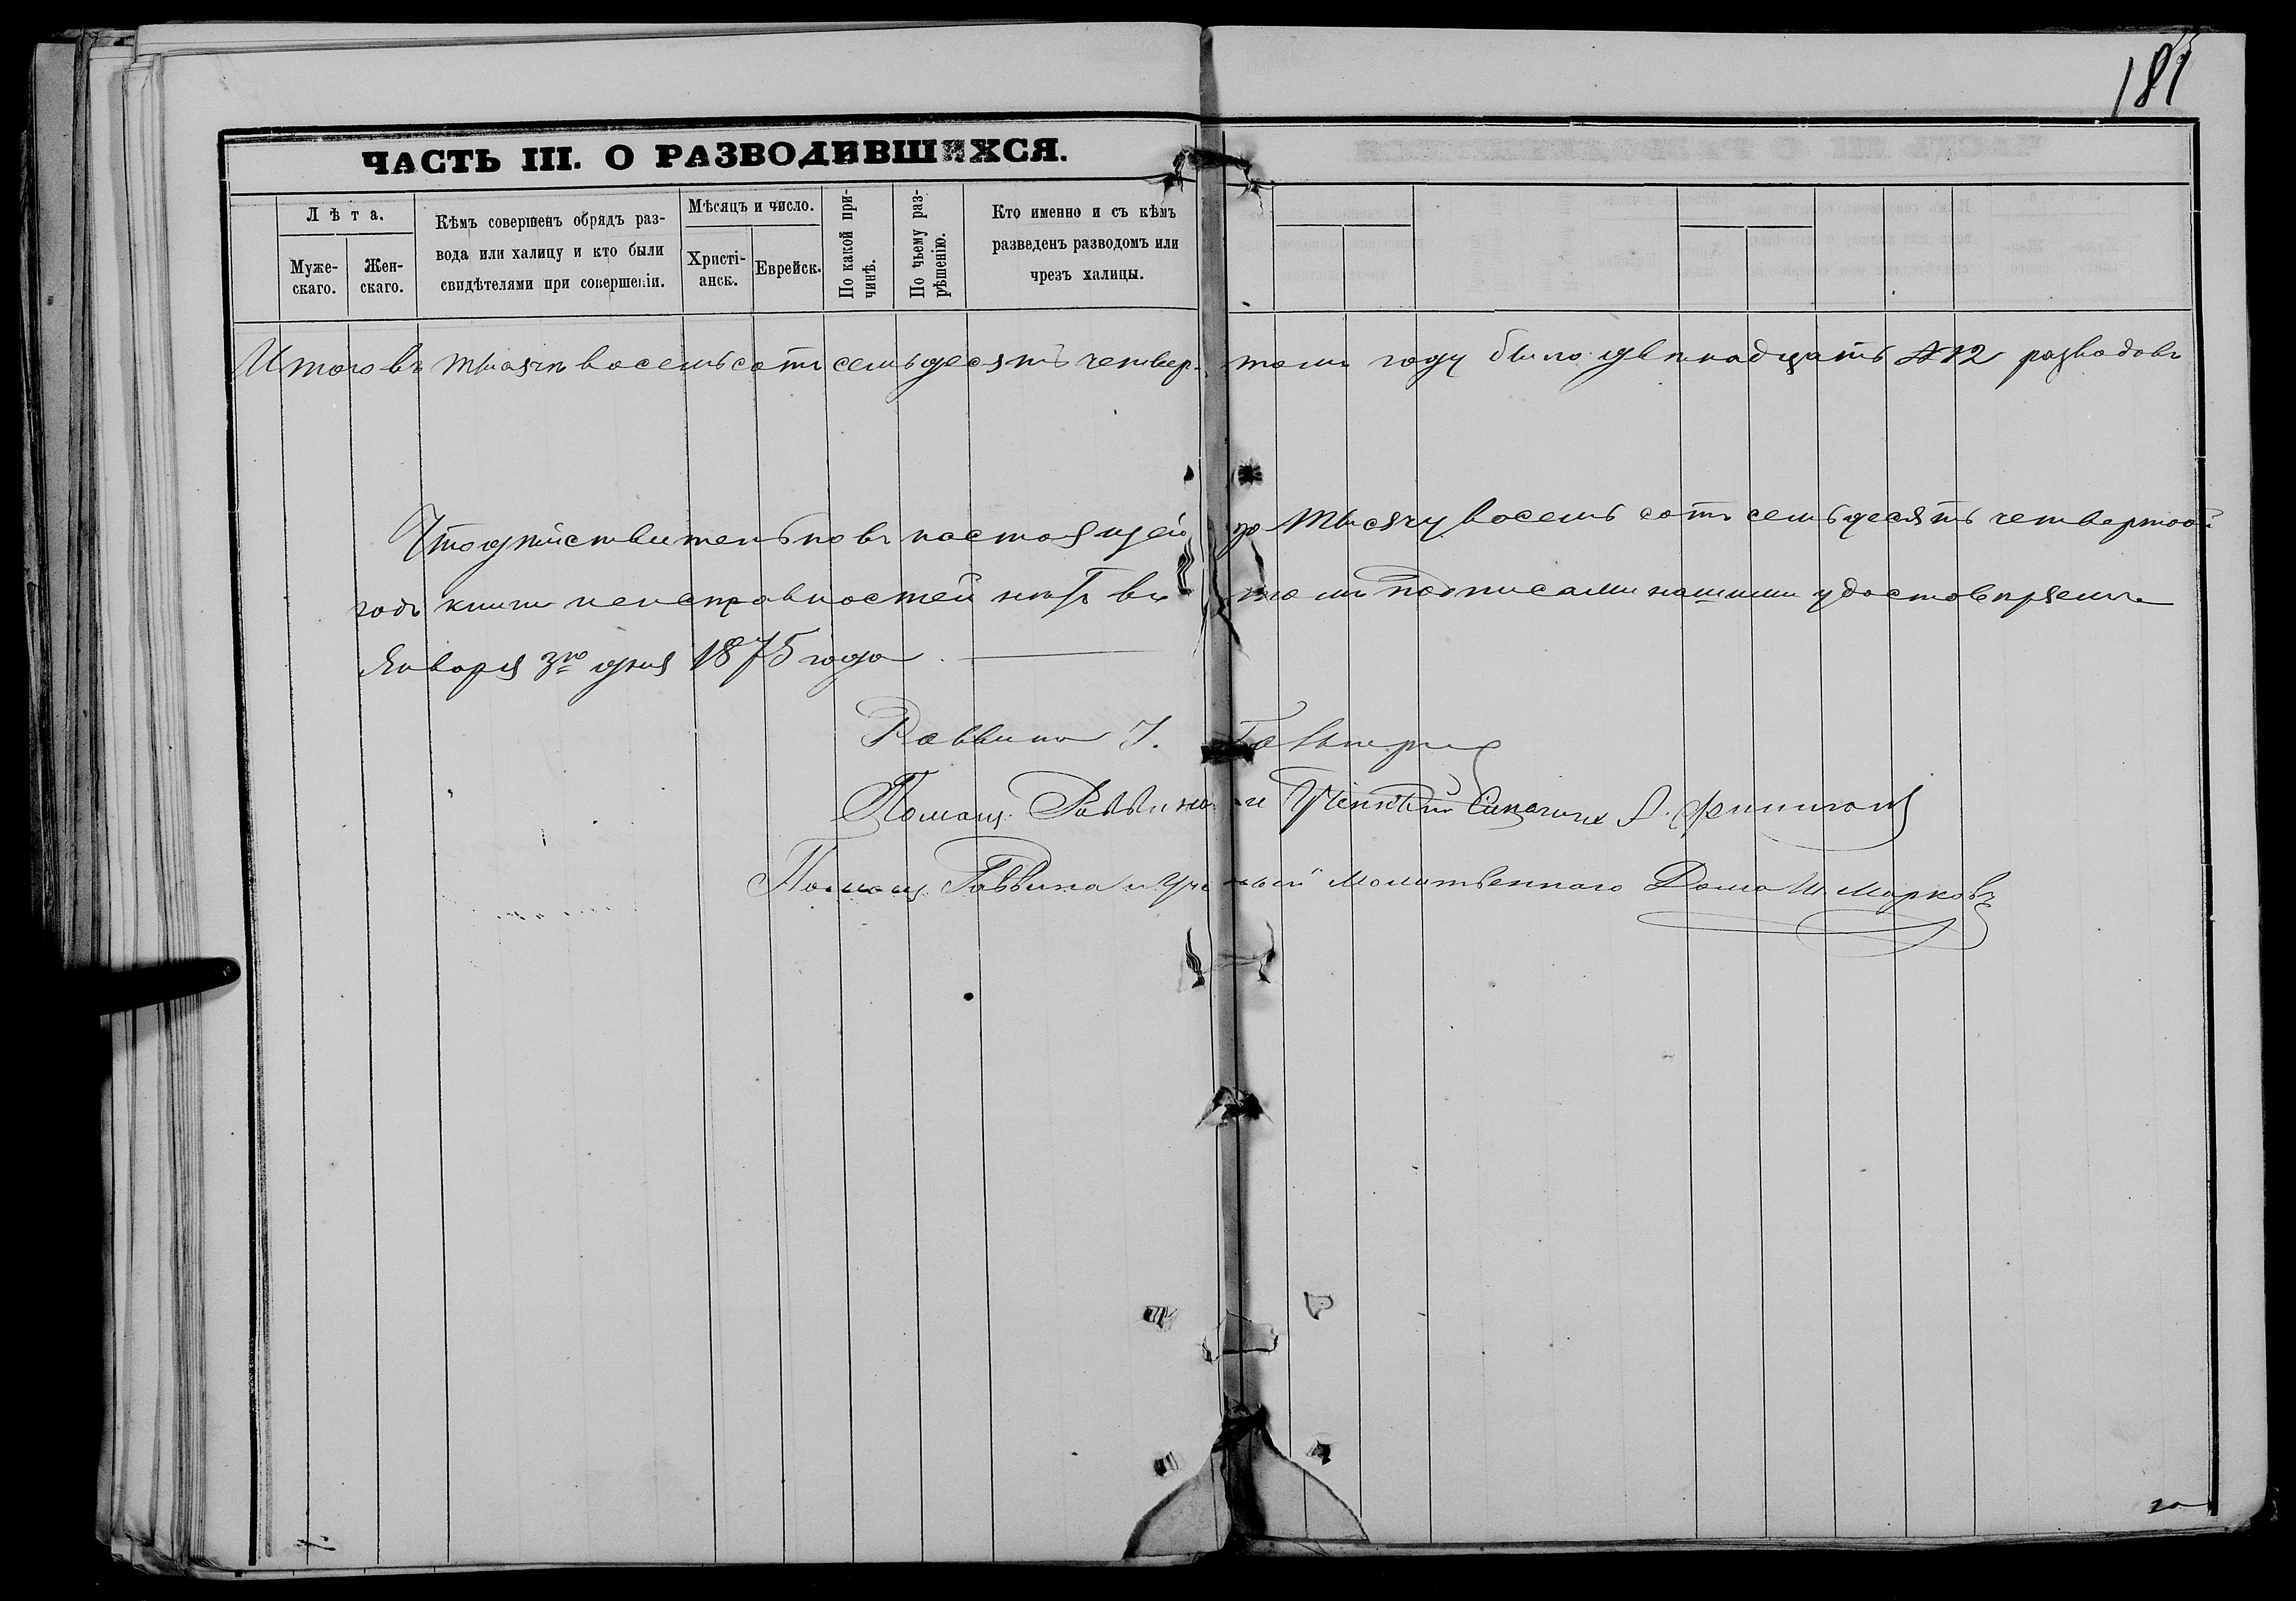 181
ЧАСТЬ III. О РАЗВОДИВШИХСЯ.
Лѣта.
Муже-
скаго.
Жен-
скаго.
Кѣмъ совершенъ обрядъ раз-
вода или халицу и кто были
свидѣтелями при совершеніи.
Мѣсяцъ и число.
Христі-
анск.
Еврейск.
По какой при-
чинѣ.
По чьему раз-
рѣшенію.
Кто именно и съ кѣмъ
разведенъ разводомъ или
чрезъ халицы.
Итого въ тысяча восемьсотъ семьдесятъ четвер- томъ году было двѣнадцать 12 разводовъ
Что дѣйствительно въ настоящей за тысячу восемь сотъ семьдесятъ четвертой
годъ книги неисправностей нѣтъ въ томъ подписами нашими удостовѣряемъ
Января 3го дня 1875 года
Раввинъ I.
Помощ. Раввина и Ученый Синагоги А.
Помощ. Раввина и Ученый Молитвеннаго Дома Ш. Марковъ